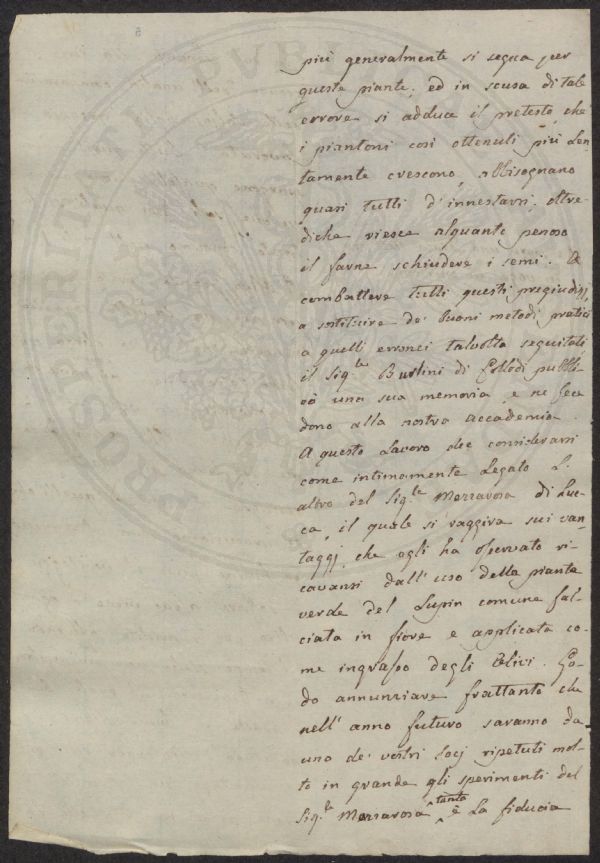 più generalmente si segua per
queste piante; ed in scusa di tale
errore si adduce il pretesto, che
i piantoni così ottenuti più len-
tamente crescono, abbisognano
quasi tutti d'innestarsi, oltre-
dichè riesce alquanto penoso
il farne schiudere i semi. A
combattere tutti questi pregiudizj,
a sostituire de' buoni metodi pratici
a quelli erronei talvolta seguitati,
il Sig.le di Collodi pubbli-
cò una sua memoria, e ne fece
dono alla nostra Accademia.
A questo lavoro dee considerarsi
come intimamente legato l'
altro del Sig.le di Luc-
ca, il quale si raggira sui van-
taggj, che egli ha osservato ri-
cavarsi dall'uso della pianta
verde del Lupin comune fal-
ciata in fiore e applicata co-
me ingrasso degli Olivi. Go-
do annunziare frattanto che
nell'anno futuro saranno da
uno de' vostri Socj ripetuti mol-
to in grande gli sperimenti del
Sig.le tanta è la fiducia
PROSPERITATI PUBL